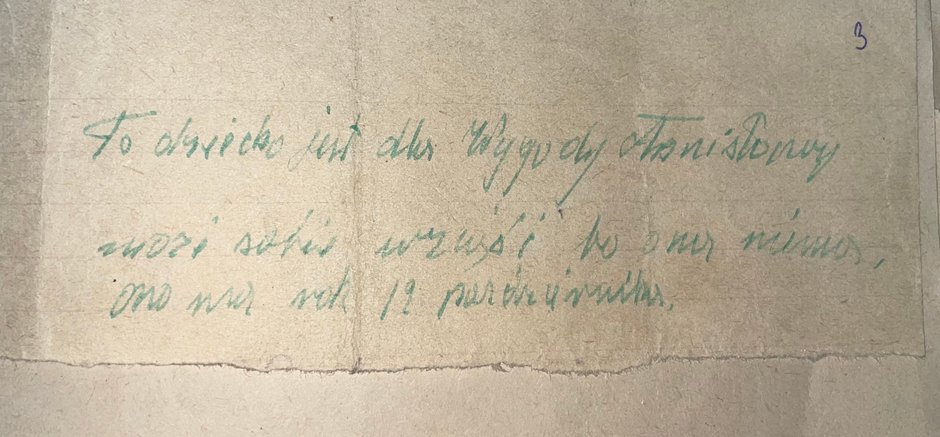 3
To dziecko jest dla Wygody Stanisławy
może sobie wziąść bo ona niema,
ono ma rok 19 października.